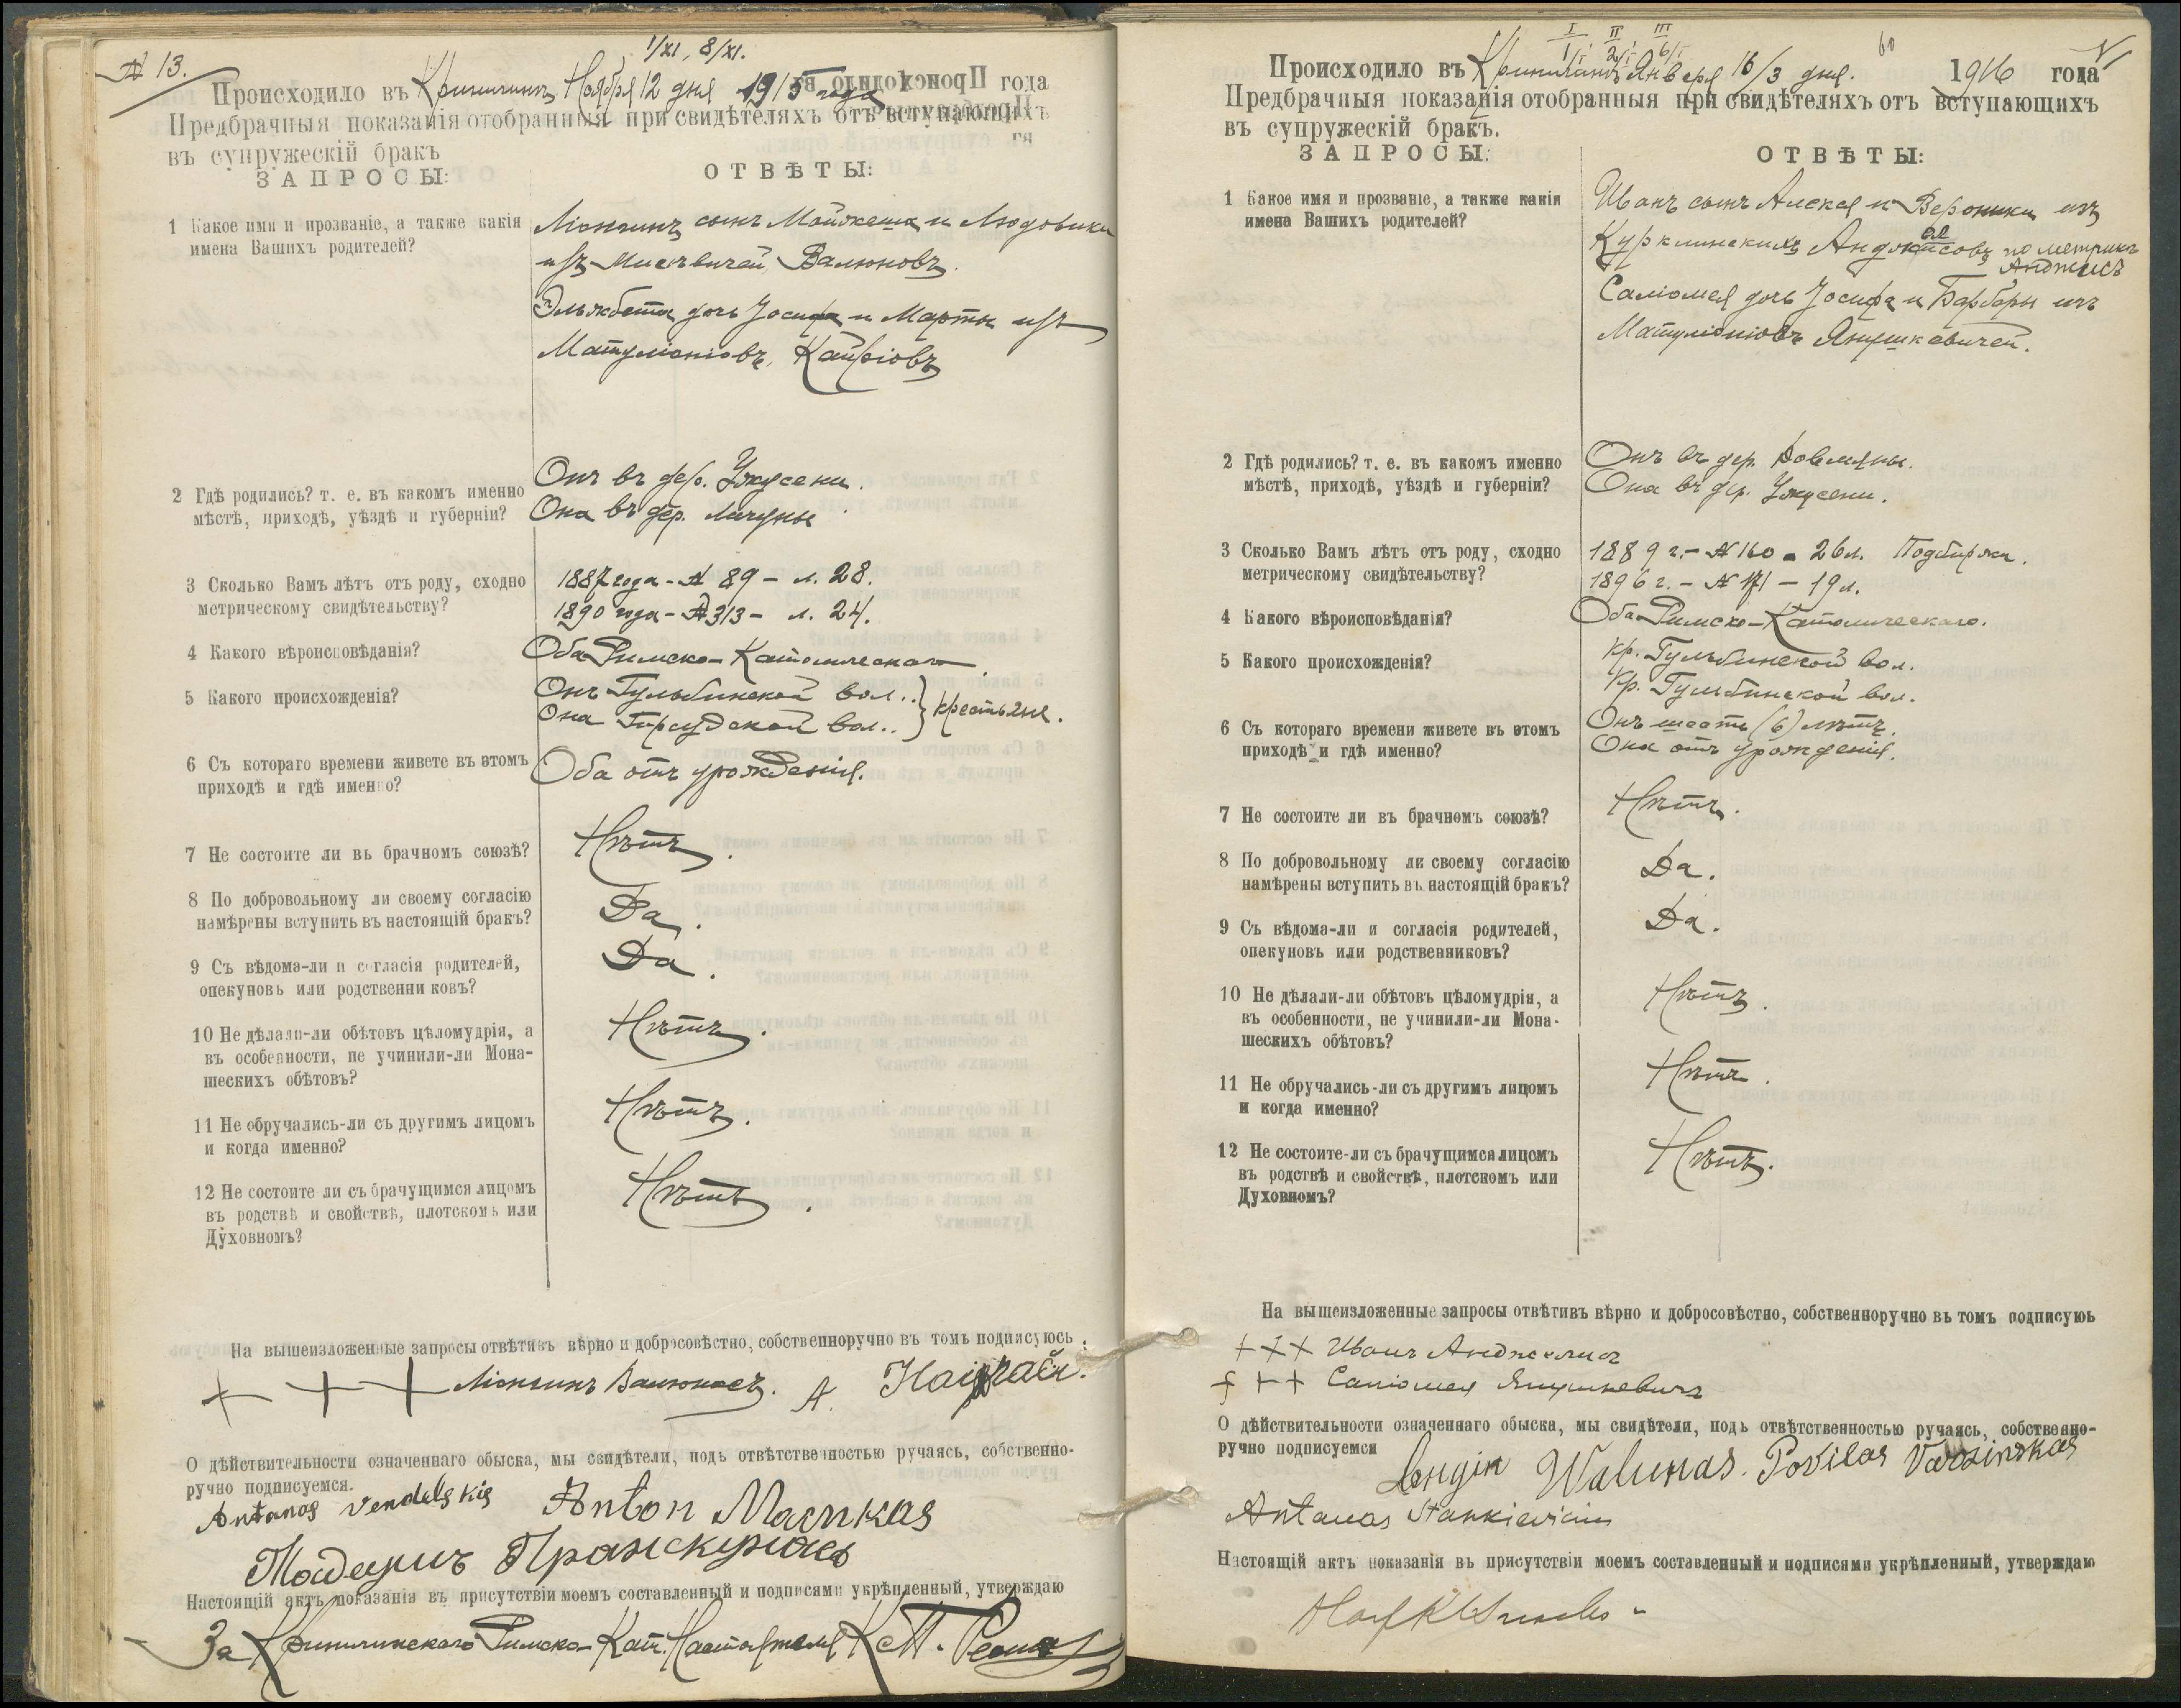 № 13.
1/XI, 8/XI.
Происходило въ Криничинъ Ноября 12 дня 1915 года года
Предбрачныя показанія отобранныя при свидѣтеляхъ отъ вступающихъ
въ супружескій бракъ
ЗАПРОСЫ:
ОТВѢТЫ:
1 Какое имя и прозваніе, а также какія
имена Вашихъ родителей?
Ліонгинъ сынъ Мойжеша и Людовики
изъ Мисевичей Валюновъ.
Эльжбета дочь Іосифа и Марты изъ
Матуліоніовъ,
2 Гдѣ родились? т. е. въ какомъ именно
мѣстѣ, приходѣ, уѣздѣ и губерніи?
Онъ въ дер. Ужусени.
Она въ дер. Личуны
3 Сколько Вамъ лѣтъ отъ роду, сходно
метрическому свидѣтельству?
1887 года - № 89 - л. 28.
1890 года - № 313 - л. 24.
4 Какого вѣроисповѣданія?
Оба Римско-Католическаго.
5 Какого происхожденія?
Онъ Гульбинской вол..
Она Гирсудской вол.. } крестьяне.
6 Съ котораго времени живете въ этомъ
приходѣ и гдѣ именно?
Оба отъ урожденія.
7 Не состоите ли вь брачномъ союзѣ?
Нѣтъ.
8 По добровольному ли своему согласію
намѣрены вступить въ настоящій бракъ?
Да.
9 Съ вѣдома-ли и согласія родителей,
опекуновъ или родственни ковъ?
Да.
10 Не дѣлали-ли обѣтовъ цѣломудрія, а
въ особенности, не учинили-ли Мона-
шескихъ обѣтовъ?
Нѣтъ.
11 Не обручались-ли съ другимъ лицомъ
и когда именно?
Нѣтъ.
12 Не состоите ли съ брачущимся лицомъ
въ родствѣ и свойствѣ, плотскомъ или
Духовномъ?
Нѣтъ.
На вышеизложенные запросы отвѣтивъ вѣрно и добросовѣстно, собственноручно въ томъ подписуюсь
+ + + Ліонгинъ Валюнасъ. А.
О дѣйствительности означеннаго обыска, мы свидѣтели, подъ отвѣтственностью ручаясь, собственно-
ручно подписуемся.
Antanas Vendelskis Anton Macukas
Тадеушъ Пранскунасъ
Настоящій актъ показанія въ присутствіи моемъ составленный и подписями укрѣпленный, утверждаю
За Криничинскаго Римско-Кат. Настоятеля
I II III
60
Происходило въ Криничинъ Января 16/3 дня. 1916 года
Предбрачныя показанія отобранныя при свидѣтеляхъ отъ вступающихъ
въ супружескій бракъ.
ЗАПРОСЫ:
ОТВѢТЫ:
1 Какое имя и прозваніе, а также какія
имена Вашихъ родителей?
Иванъ сынъ Алексея и Вероники изъ
Курклинскихъ Анджисовъ по метрикѣ
Анджисъ
Саліомея дочь Іосифа и Барбары изъ
Матуліоніовъ Янушкевичей.
2 Гдѣ родились? т. е. въ какомъ именно
мѣстѣ, приходѣ, уѣздѣ и губерніи?
Онъ въ дер. Довляны.
Она въ дер. Ужусени.
3 Сколько Вамъ лѣтъ отъ роду, сходно
метрическому свидѣтельству?
1889 г. - № 160 - 26 л. Подбиржи.
1896 г. - № 171 - 19 л.
4 Какого вѣроисповѣданія?
Оба Римско-Католическаго.
5 Какого происхожденія?
Кр. Гульбинской вол.
Кр. Гульбинской вол.
6 Съ котораго времени живете въ этомъ
приходѣ и гдѣ именно?
Онъ шесть (6) лѣтъ.
Она отъ урожденія.
7 Не состоите ли въ брачномъ союзѣ?
Нѣтъ.
8 По добровольному ли своему согласію
намѣрены вступить въ настоящій бракъ?
Да.
9 Съ вѣдома-ли и согласія родителей,
опекуновъ или родственниковъ?
Да.
10 Не дѣлали-ли обѣтовъ цѣломудрія, а
въ особенности, не учинили-ли Мона-
шескихъ обѣтовъ?
Нѣтъ.
11 Не обручались-ли съ другимъ лицомъ
и когда именно?
Нѣтъ.
12 Не состоите-ли съ брачущимся лицомъ
въ родствѣ и свойствѣ, плотскомъ или
Духовномъ?
Нѣтъ.
На вышеизложенные запросы отвѣтивъ вѣрно и добросовѣстно, собственноручно въ томъ подписуюь
+++ Иванъ Анджелисъ
+++ Саліомея Янушкевичъ
О дѣйствительности означеннаго обыска, мы свидѣтели, подъ отвѣтственностью ручаясь, собственно-
ручно подписуемся
Longin Walunas. Povilas Varsinskas
Antanas Stankievicius
Настоящій актъ показанія въ присутствіи моемъ составленный и подписями укрѣпленный, утверждаю